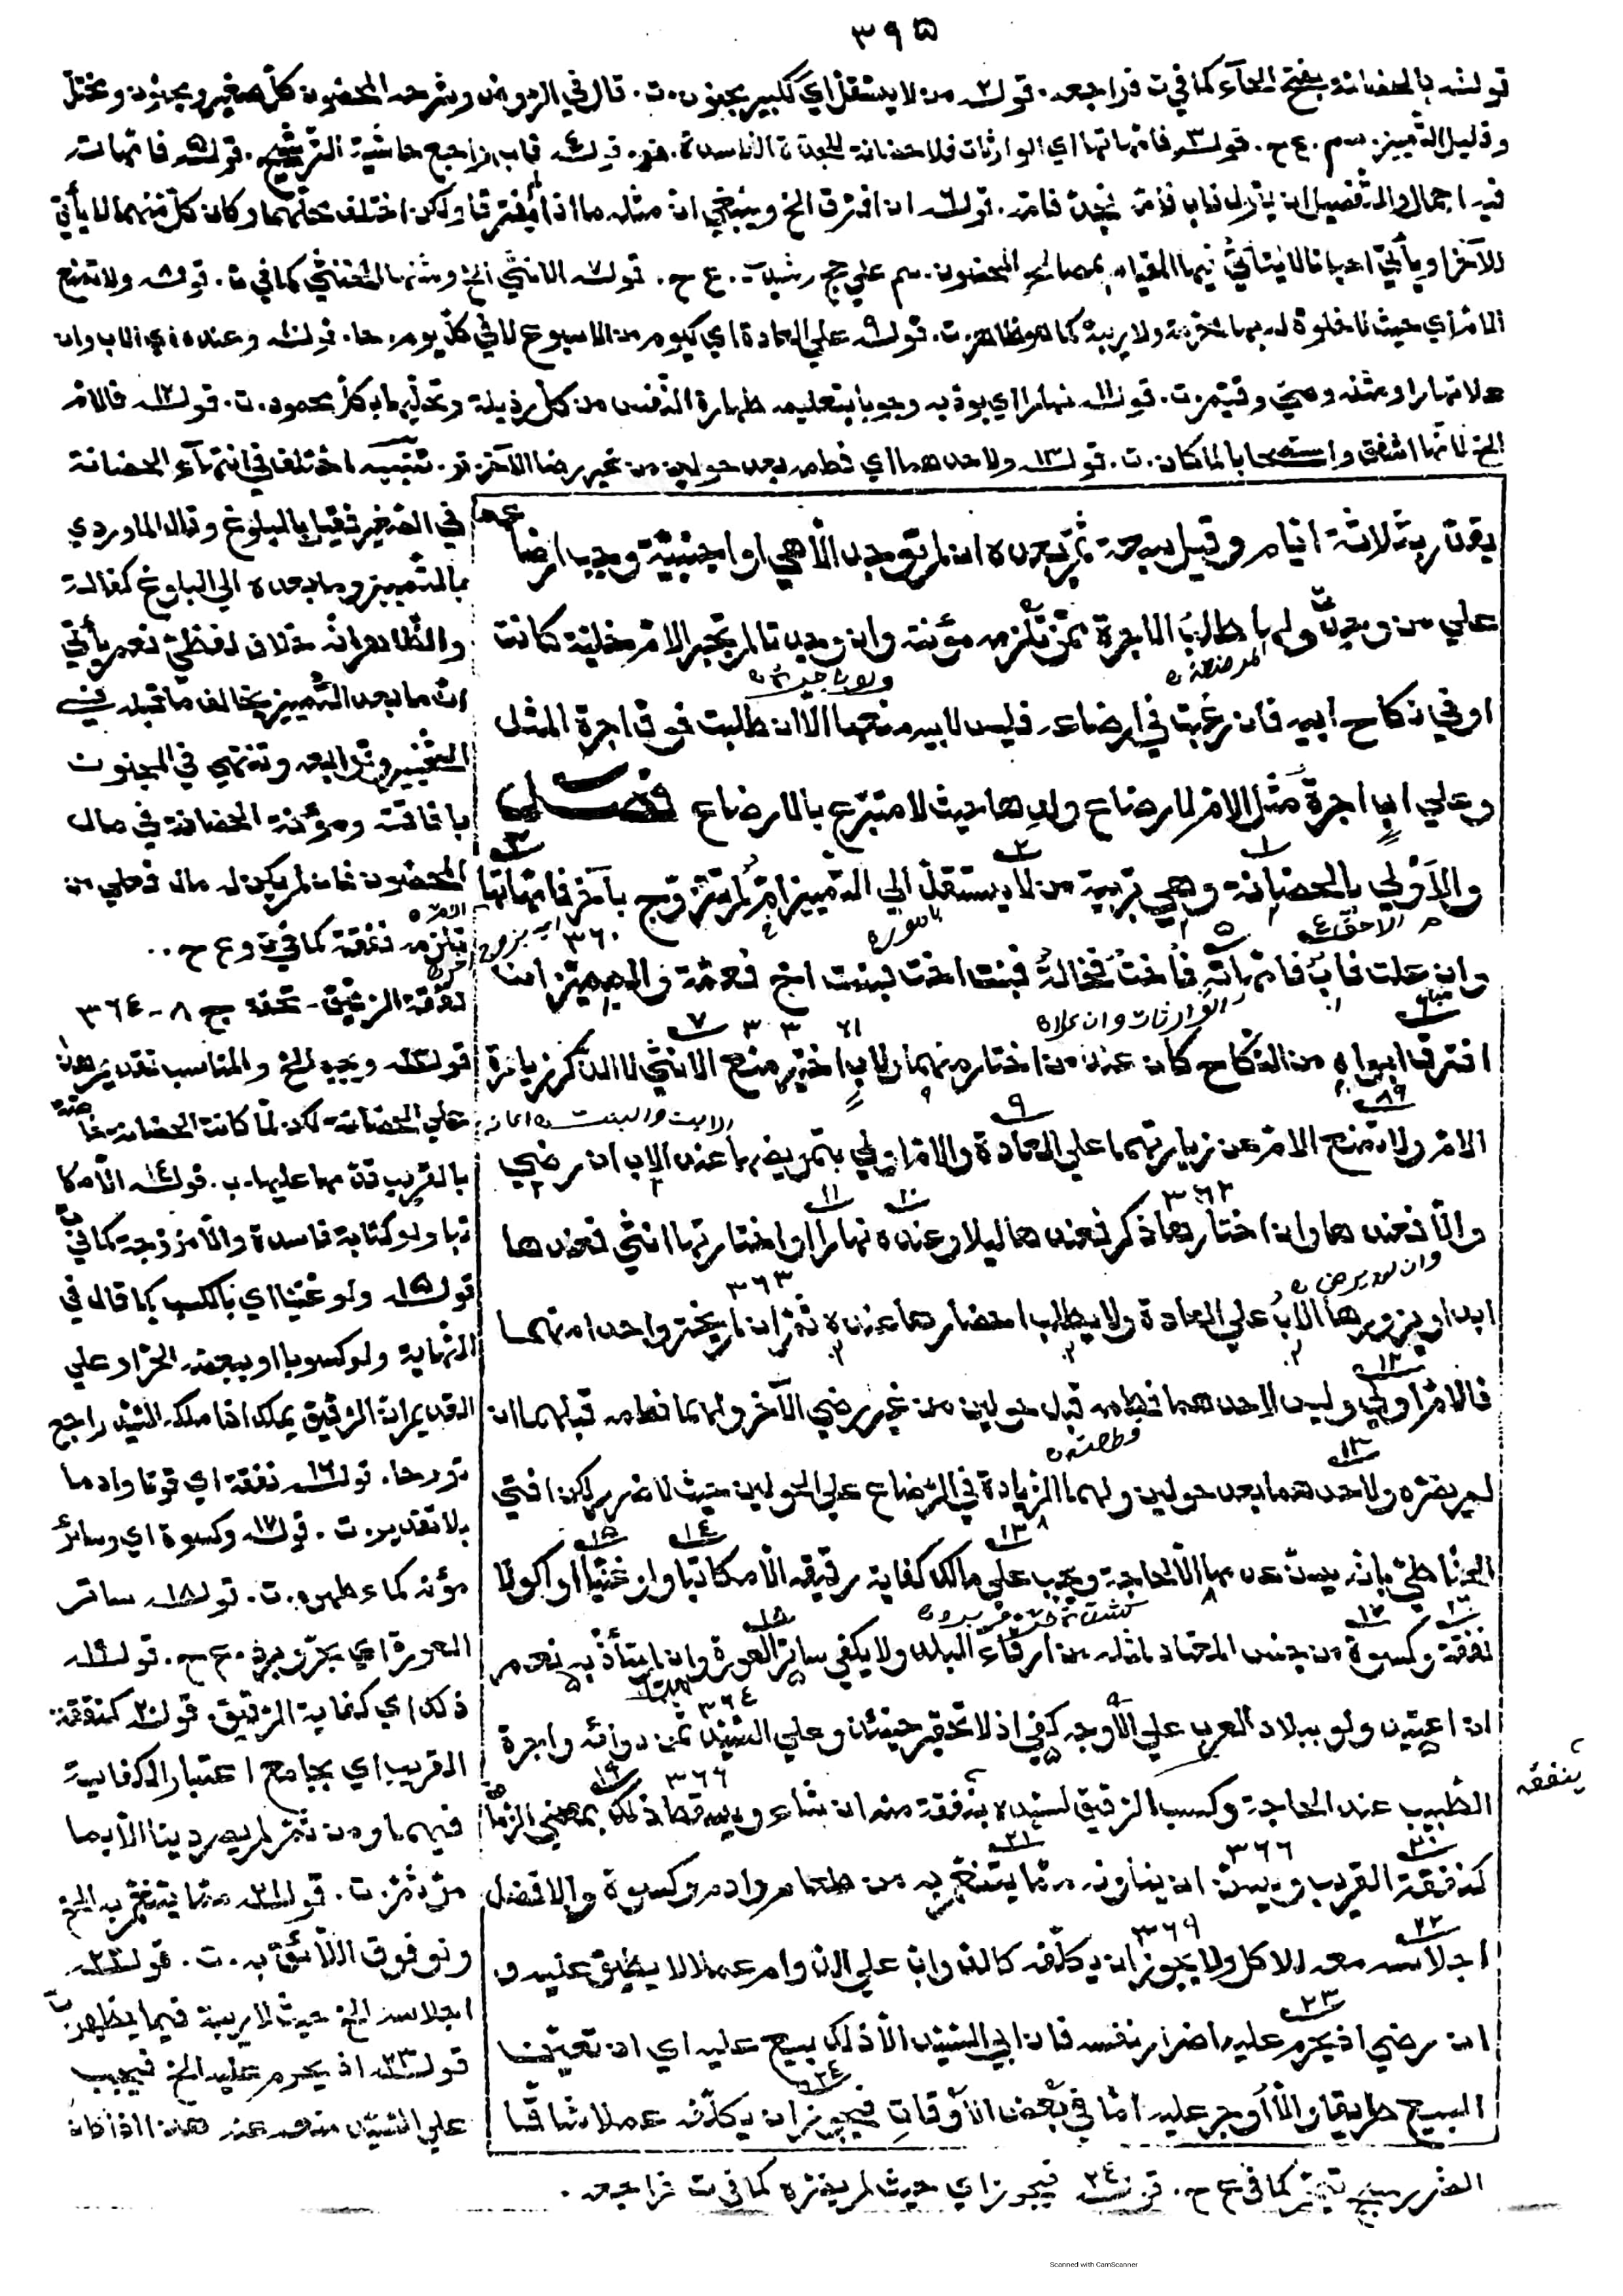 ٣٩٥
قولـه بالحضانة بفتح الحآء كما في ت فراجعه. قولـه٢ من لا يستقل اي ككبير مجنون.ت. قال في الروض وشرحه المحضون كلّ صغير ومجنون ومختلّ
وقليل التّمييز. سم. ع ح. قولـه٣ فامّهاتها اي الوارثات فلا حضانة للجدّة الفاسدة. قولـه٤ فاب راجع حاشية التّرشيح. قولـه٥ فامّهات
فيه اجمال والتّفصيل ان يقول فاب فامّه. قولـه٦ ان افترق الخ وينبغي ان مثله ما اذا لم يفترقا ولكن اختلف محلّهما وكان كلّ منهما لا يأتي
للآخر او يأتي احيانا لا يتأتّي فيها القيام بمصالح المحضون. سم علي حج رشيدي. ع ح. قولـه٧ الانثي الخ ومثلها الخنثي كما في ت. قولـه٨ ولا تمنع
الامّ اي حيث لا خلوة له بها محرّمة ولا ريبة كما هو ظاهر.ت. قولـه٩ علي العادة اي كيوم من الاسبوع لا في كلّ يوم. حا. قولـه١٠ وعنده اي الاب وان
علا نهارا ومثله وصيّ وقيّم.ت. قولـه١١ نهارا اي يؤدّبه وجوبا بتعليمه طهارة النّفس من كلّ رذيلة وتحلّيها بكلّ محمود.ت. قولـه١٢ فالامّ
الخ لانّها اشفق واستصحابا لما كان.ت. قولـه١٣ ولاحدهما اي فطمه بعد حولين من غير رضا الآخر. تنبيه اختلف في انتهآء الحضانة
يقدّر بثلاثة ايّام وقيل سبعة ثمّ بعده ان لم توجد الّا هي او اجنبيّة وجب ارضاعه
علي من وجدت ولها طلب الاجرة ممّن تلزمه مؤنته وان وجدتا لم تجبر الامّ خليّة كانت
او في نكاح ابيه فان رغبت في ارضاعه فليس لابيه منعها الّا ان طلبت فوق اجرة المثل
وعلي اب اجرة مثل الامّ لارضاع ولدها حيث لا متبرّع بالارضاع فصل
والاَوْلي بالحضانة وهي تربية من لا يستقلّ الي التّمييز امّ لم تتزوّج بآخر فامّهاتها
وان علت فاب فامّهاته فأخت فخالة فبنت اخت فبنت اخ فعمّة والمميّز ان
افترق ابواه من النّكاح كان عند من اختار منهما ولاب اختير منع الانثي لا الذّكر زيارة
الامّ ولا تمنع الامّ عن زيارتهما علي العادة والامّ اولي بتمريضهما عند الاب ان رضي
والّا فعندها وان اختارها ذكر فعندها ليلا وعنده نهارا او اختارتها انثي فعندها
ابدا ويزورها الاب علي العادة ولا يطلب احضارها عنده ثمّ ان لم يختر واحدا منهما
فالامّ اولي وليس لاحدهما فطمه قبل حولين من غير رضي الآخر ولهما فطمه قبلهما ان
لم يضرّه ولاحدهما بعد حولين ولهما الزّيادة في الرّضاع علي الحولين حيث لا ضرر لكن افتي
الحنّاطيّ بانّه يسنّ عدمها الّا لحاجة ويجب علي مالك كفاية رقيقه الّا مكاتبا ولو غنيّا او اكولا
نفقة وكسوة من جنس المعتاد لمثله من ارقّاء البلد ولا يكفي ساتر العورة وان لم يتأذّ به نعم
ان اعتيد ولو ببلاد العرب علي الاوجه كفي اذ لا تحقير حينئذ وعلي السّيّد ثمن دوائه واجرة
الطّبيب عند الحاجة وكسب الرّقيق لسيّده ينفقه منه ان شاء ويسقط ذلك بمضي الزّمان
كنفقة القريب ويسنّ ان يناوله ممّا يتنعّم به من طعام وادم وكسوة والافضل
اجلاسه معه للاكل ولا يجوز ان يكلّفه كالدّوابّ علي الدّوام عملا لا يطيقه عليه و
ان رضي اذ يحرم عليه اضرار نفسه فان ابي السّيّد الّا ذلك بيع عليه اي ان تعيّن
البيع طريقا والّا اوجر عليه امّا في بعض الاَوقاتِ فيجوز ان يكلّفه عملا شاقّا
في الصّغير فقيل بالبلوغ وقال الماوردي
بالتّمييز وما بعده الي البلوغ كفالة
والظّاهر انّه خلاف لفظيّ نعم يأتي
انّ ما بعد التّمييز يخالف ما قبله في
التّخيير وتوابعه وتنتهي في المجنون
بافاقته ومؤنة الحضانة في مال
المحضون فان لم يكن له مال فعلي من
تلزمه نفقته كما في ت وع ح..
نفقة الرّقيق- تحفة ج ٨- ٣٦٤
قولـه ويجب الخ والمناسب تقديم هذا
علي الحضانة لكن لمّا كانت الحضانة خاصّة
بالقريب قدّمها عليها.ب. قولـه١٤ الّا مكا
تبا ولو كتابة فاسدة والّا مزوّجة كما في ت
قولـه١٥ ولو غنيّا اي بالكسب كما قال في
النّهاية ولو كسوبا او ببعضه الخ راد علي
القديم انّ الرّقيق يملك اذا ملكه السّيّد راجع
قولـه١٦ نفقة اي قوتا وادما
بلا تقدير.ت. قولـه١٧ وكسوة اي وسائر
مؤنه كماء طهره.ت. قولـه١٨ ساتر
العورة اي بحرّ وبرد. ع ح. قولـه١٩
ذلك اي كفاية الرّقيق. قولـه٢٠ كنفقة
القريب اي بجامع اعتبار الكفاية
فيهما ومن ثمّ لم يصر دينا الّا بما
مرّ ثمّ.ت. قولـه٢١ ممّا يتنعّم به الخ
ولو فوق اللّائق به.ت. قولـه٢٢
اجلاسه الخ حيث لا ريبة فيما يظهر.ت
قولـه٢٣ اذ يحرم عليه الخ فيجب
علي السّيّد منعه عنه هذا اذا كان
ينفقه
الضّرر مبيح تيمّم كما في ع ح. قولـه٢٤ فيجوز اي حيث لم يضرّه كما في ت فراجعه.
Scanned with CamScanner